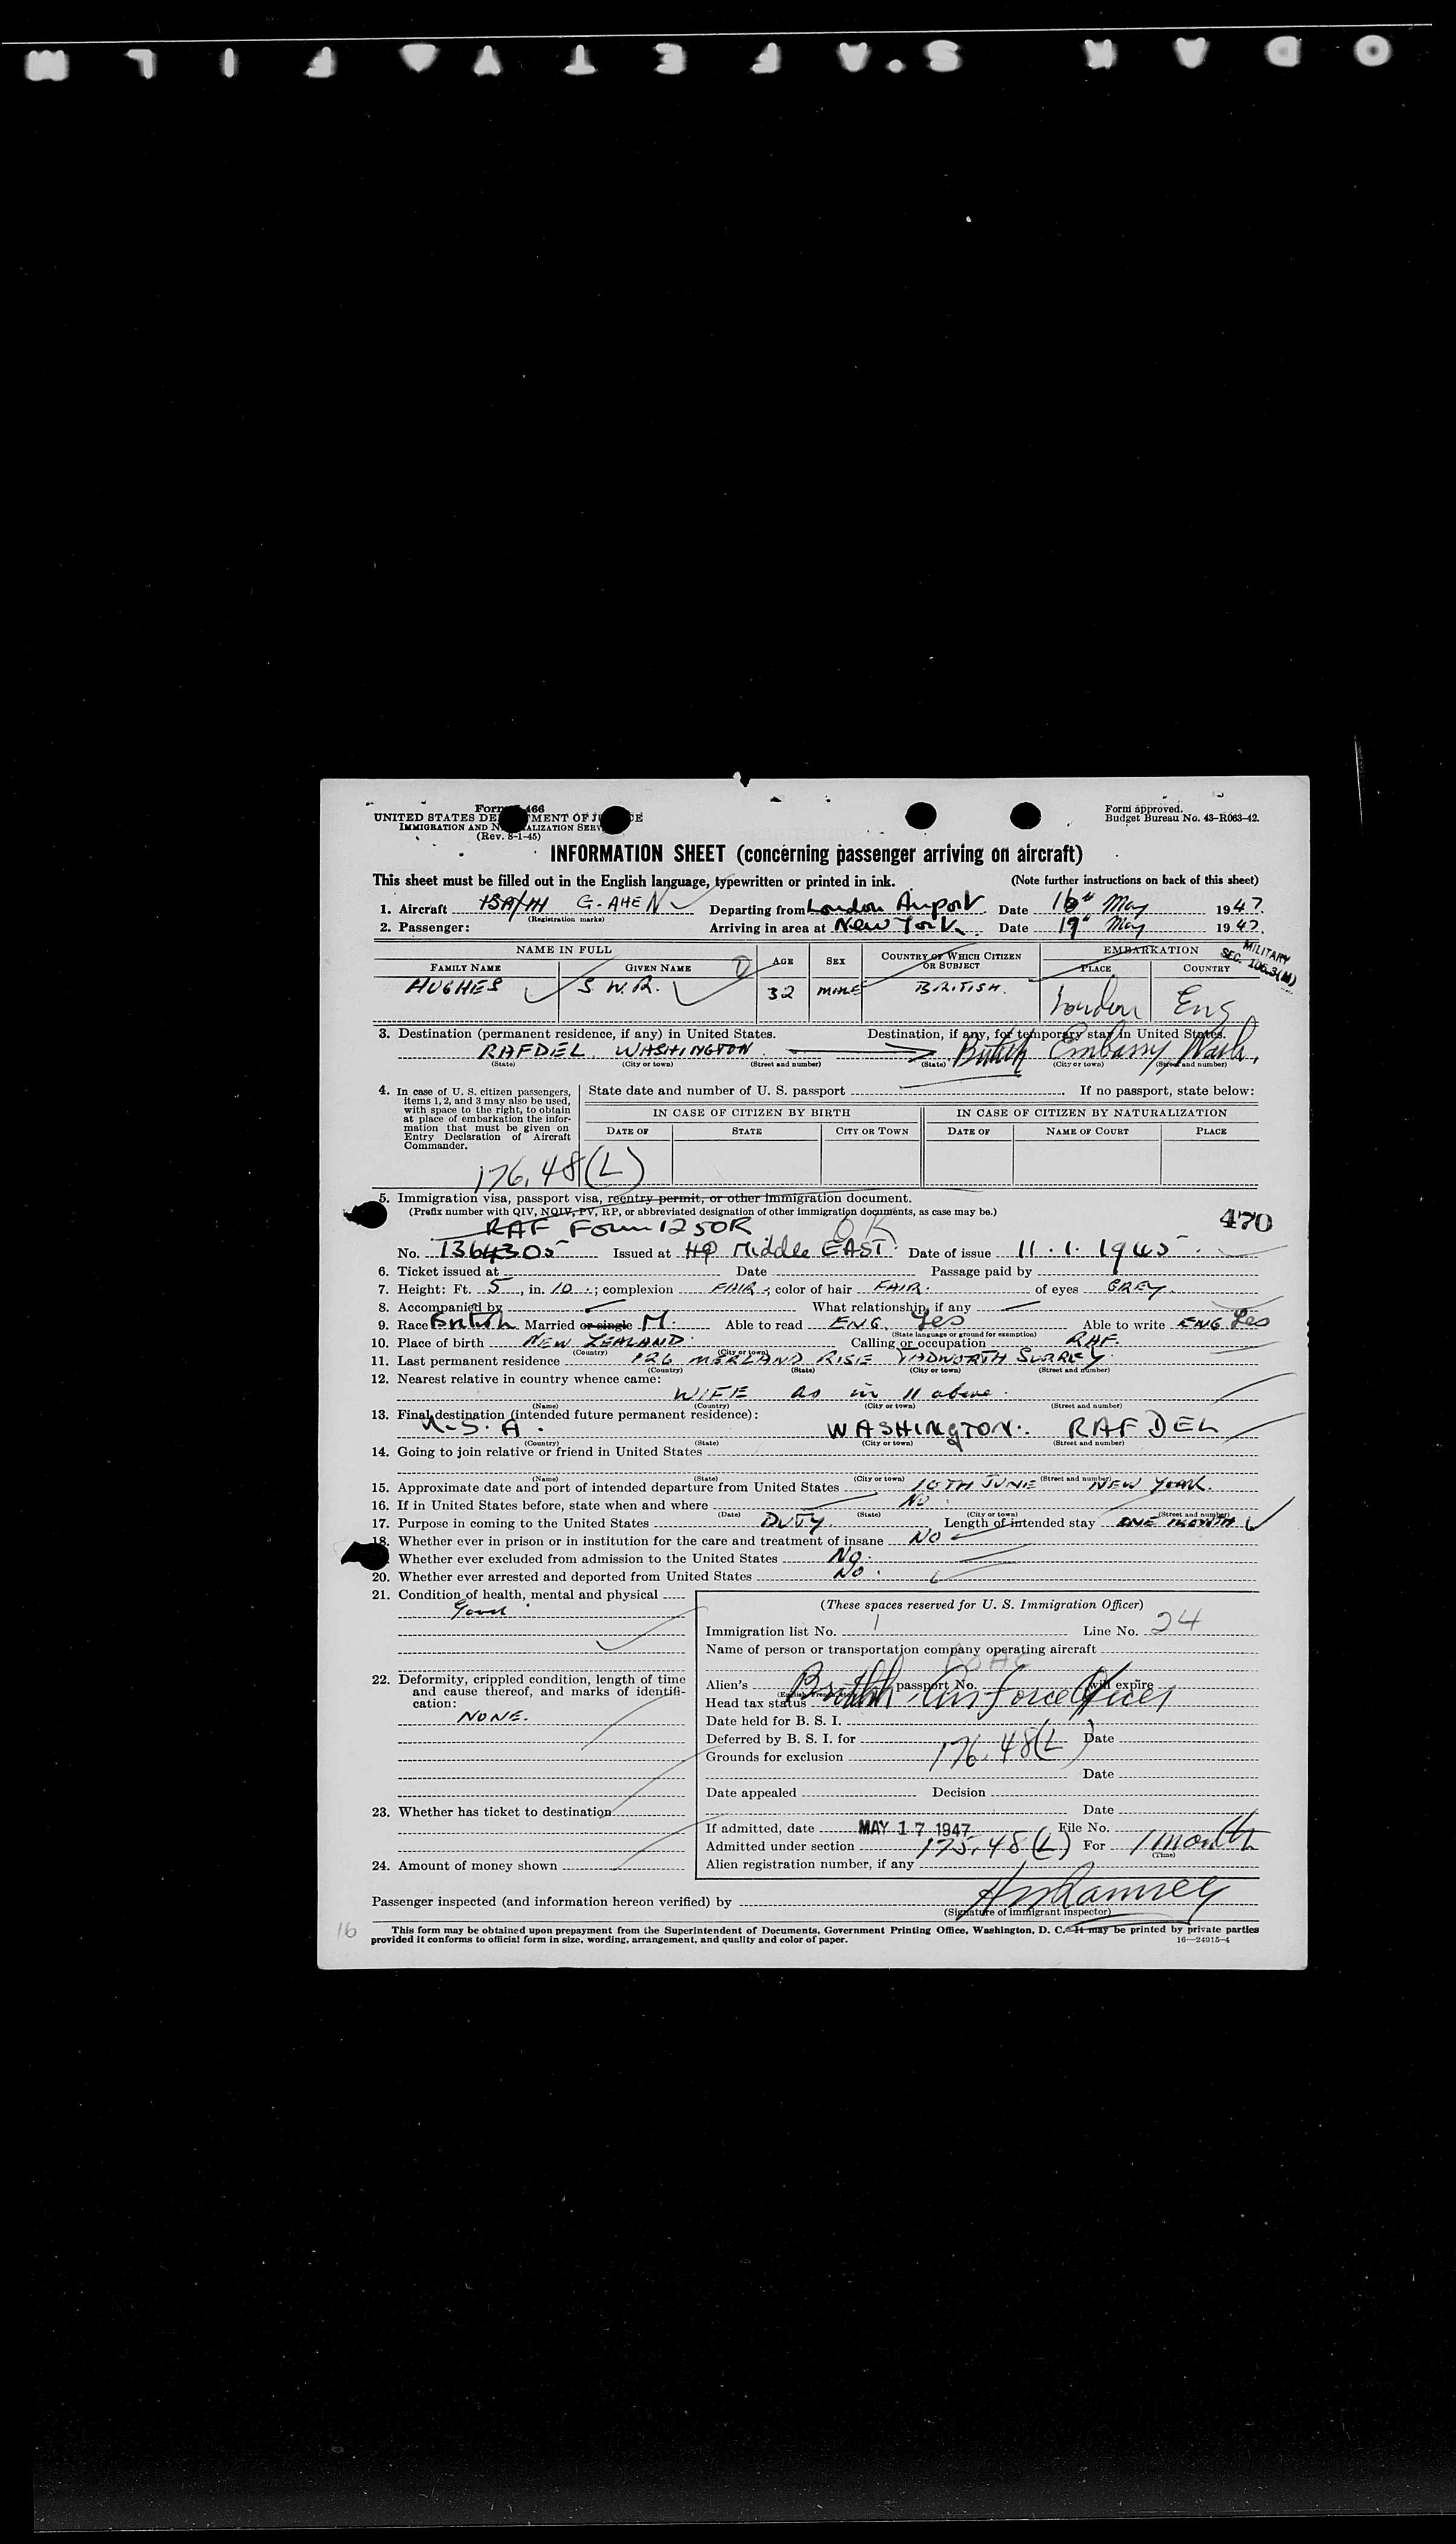 SAFETY FILM
Form I-466
UNITED STATES DEPARTMENT OF JUSTICE
IMMIGRATION AND NATURALIZATION SERVICE
(Rev. 8-1-45)
Form approved.
Budget Bureau No. 43-R063-42.
INFORMATION SHEET (concerning passenger arriving on aircraft)
This sheet must be filled out in the English language, typewritten or printed in ink. (Note further instructions on back of this sheet)
1. Aircraft G-AHEN Departing from London Airport Date 16th May 1947.
(Registration marks)
2. Passenger: Arriving in area at New York. Date 19th May 1947.
NAME IN FULL AGE SEX COUNTRY OF WHICH CITIZEN OR SUBJECT EMBARKATION
MILITARY SEC. 106.3(M)
FAMILY NAME GIVEN NAME PLACE COUNTRY
HUGHES S. W. R. 32 BRITISH. London Eng
3. Destination (permanent residence, if any) in United States. Destination, if any, for temporary stay in United States.
RAFDEL WASHINGTON British Embassy Wash.
(State) (City or town) (Street and number) (State) (City or town) (Street and number)
4. In case of U. S. citizen passengers, items 1, 2, and 3 may also be used, with space to the right, to obtain at place of embarkation the information that must be given on Entry Declaration of Aircraft Commander.
State date and number of U. S. passport If no passport, state below:
IN CASE OF CITIZEN BY BIRTH IN CASE OF CITIZEN BY NATURALIZATION
DATE OF STATE CITY OR TOWN DATE OF NAME OF COURT PLACE
176.48(L)
5. Immigration visa, passport visa, reentry permit, or other immigration document.
(Prefix number with QIV, NQIV, PV, RP, or abbreviated designation of other immigration documents, as case may be.)
470
RAF Form 1250R OK
No. 1364305 Issued at HQ Middle EAST. Date of issue 11.1.1945.
6. Ticket issued at Date Passage paid by
7. Height: Ft. 5, in. 10.; complexion FAIR; color of hair FAIR. of eyes GREY.
8. Accompanied by What relationship, if any
9. Race British Married or single M. Able to read ENG. Yes Able to write ENG Yes
(State language or ground for exemption)
10. Place of birth NEW ZEALAND. Calling or occupation RAF.
(Country) (City or town)
11. Last permanent residence 126 MERLAND RISE TADWORTH SURREY.
(Country) (State) (City or town) (Street and number)
12. Nearest relative in country whence came:
WIFE as in 11 above.
(Name) (Country) (City or town) (Street and number)
13. Final destination (intended future permanent residence):
U.S.A. WASHINGTON. RAFDEL
(Country) (State) (City or town) (Street and number)
14. Going to join relative or friend in United States
(Name) (State) (City or town) (Street and number)
15. Approximate date and port of intended departure from United States JUNE NEW YORK.
16. If in United States before, state when and where NO.
(Date) (State) (City or town) (Street and number)
17. Purpose in coming to the United States DUTY. Length of intended stay ONE MONTH
18. Whether ever in prison or in institution for the care and treatment of insane NO
Whether ever excluded from admission to the United States No.
20. Whether ever arrested and deported from United States No.
21. Condition of health, mental and physical
Good
22. Deformity, crippled condition, length of time and cause thereof, and marks of identification:
NONE.
23. Whether has ticket to destination
24. Amount of money shown
(These spaces reserved for U. S. Immigration Officer)
Immigration list No. 1 Line No. 24
Name of person or transportation company operating aircraft
BOAC
Alien's passport No. will expire
British Air Force Officer
Head tax status
Date held for B. S. I.
Deferred by B. S. I. for Date
176.48(L)
Grounds for exclusion
Date
Date appealed Decision
Date
If admitted, date MAY 17 1947 File No.
Admitted under section 175.48(L) For 1 month
(Time)
Alien registration number, if any
Passenger inspected (and information hereon verified) by
(Signature of immigrant inspector)
16
This form may be obtained upon prepayment from the Superintendent of Documents, Government Printing Office, Washington, D. C. It may be printed by private parties
provided it conforms to official form in size, wording, arrangement, and quality and color of paper. 16—24915-4